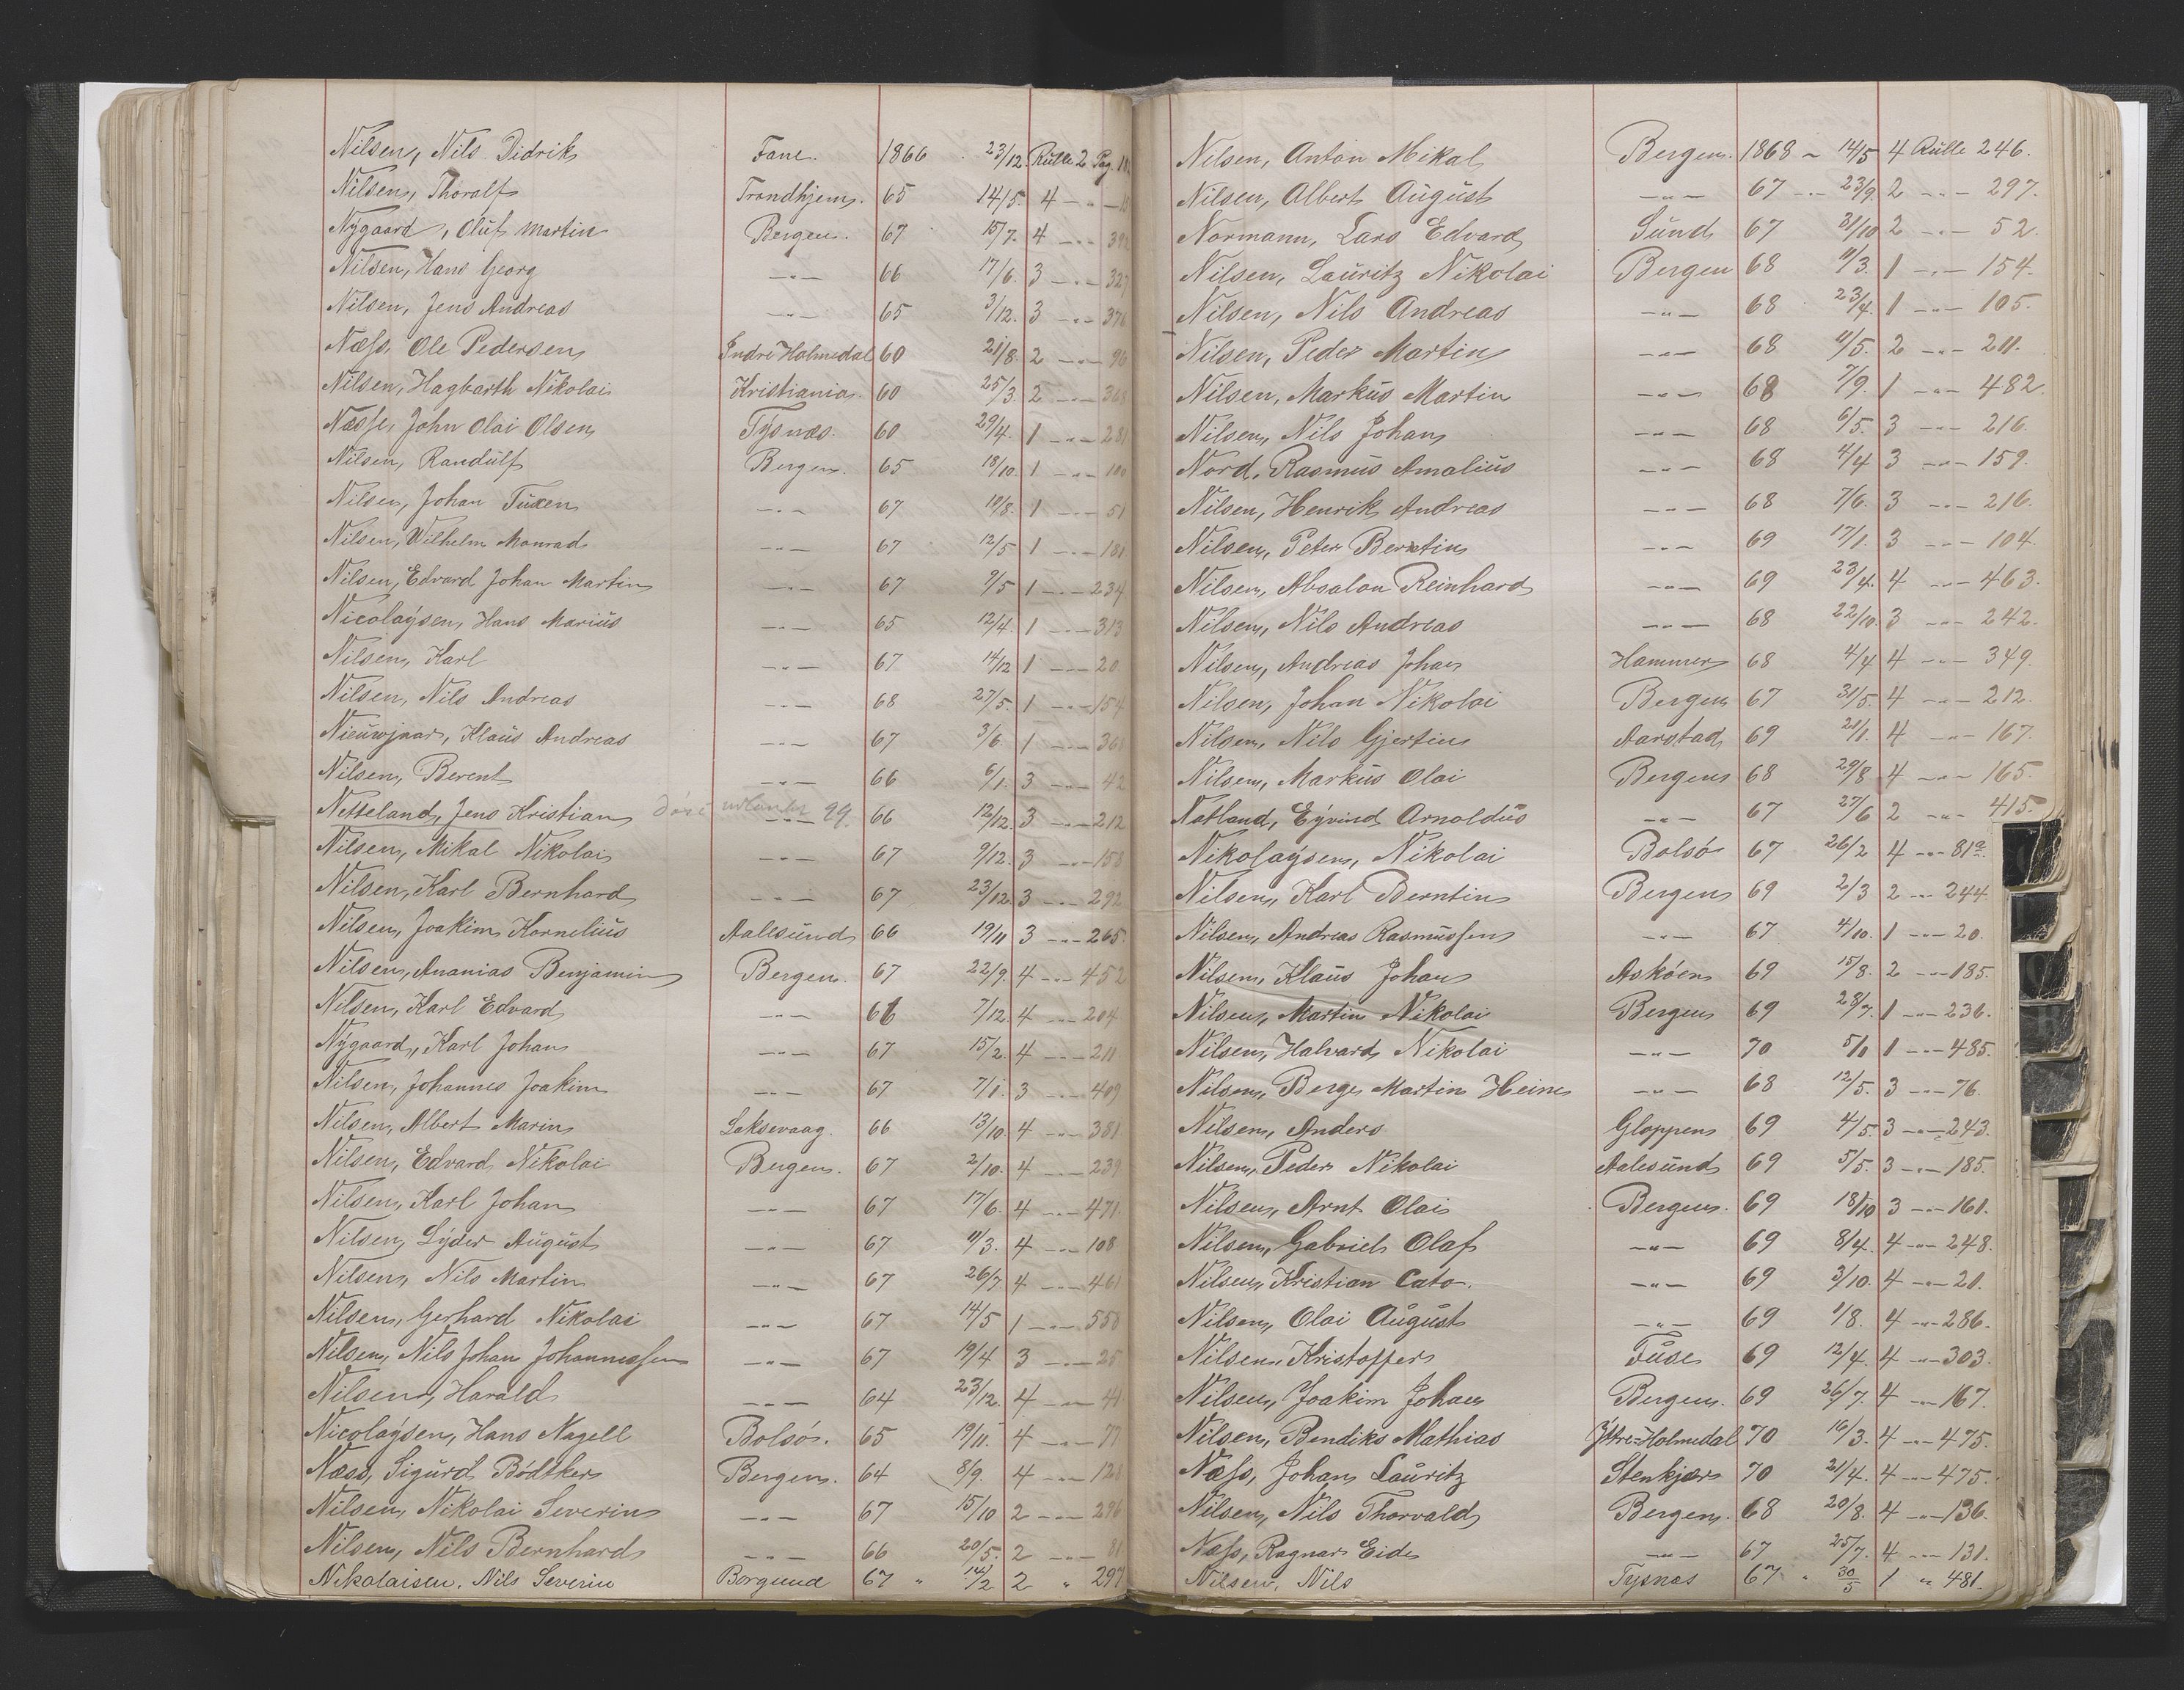 Nilsen, Nils Didrik Fane. 1866 23/12. Rulle 2 Pag.
Nilsen, Thoralf Trondhjem. 65 14/5. 4 -"-
Nygaard, Oluf Martin Bergen. 67 15/7. 4 -"-
Nilsen, Hans Georg -"- 66 17/6. 3 -"- 327
Nilsen, Jens Andreas -"- 65 3/12. 3 -"- 376
Næss, Ole Pedersen Indre Holmedal 60 21/8. 2 -"- 96
Nilsen, Hagbarth Nikolai Kristiania. 60 25/3. 2 -"- 368
Næsse, John Olai Olsen Tysnæs. 60 29/4. 1 -"- 281
Nilsen, Randulf Bergen. 65 18/10. 1 -"- 100
Nilsen, Johan Tuxen -"- 67 19/8. 1 -"- 51
Nilsen, Wilhelm Monrad -"- 67 12/5 1 -"- 181
Nilsen, Edvard Johan Martin -"- 67 9/5 1 -"- 234
Nicolaysen, Hans Marius -"- 65 12/4. 1 -"- 313
Nilsen, Karl -"- 67 14/12 1 -"- 20.
Nilsen, Nils Andreas -"- 68 27/5. 1 -"- 154
Nieuwjaar, Klaus Andreas -"- 67 3/6. 1 -"- 361
Nilsen, Berent -"- 66 6/1. 3 -"- 42
Netteland, Jens Kristian død i udlandet 99. -"- 66 12/12. 3 -"- 212
Nilsen, Mikal Nikolai -"- 67 9/12. 3 -"- 158
Nilsen, Karl Bernhard -"- 67 23/12. 3 -"- 292
Nilsen, Joakim Kornelius Aalesund 66 19/11 3 -"- 265
Nilsen, Ananias Benjamin Bergen. 67 22/9. 4 -"- 452
Nilsen, Karl Edvard -"- 66 7/12 4 -"- 204
Nygaard, Karl Johan -"- 67 15/2. 4 -"- 211
Nilsen, Johannes Joakim -"- 67 7/1. 3 -"- 409
Nilsen, Albert Marin Laksevaag. 66 13/10. 4 -"- 381
Nilsen, Edvard Nikolai Bergen. 67 2/10. 4 -"- 239
Nilsen, Karl Johan -"- 67 17/6. 4 -"- 471.
Nilsen, Lyder August -"- 67 11/3. 4 -"- 108
Nilsen, Nils Martin -"- 67 26/7 4 -"- 461
Nilsen, Gerhard Nikolai -"- 67 14/5 1 -"- 558
Nilsen, Nils Johan Johannessen -"- 67 19/4 3 -"- 25
Nilsen, Harald -"- 64 23/12. 4 -"- 41
Nicolaysen, Hans Nagell Bolsö. 65 19/11. 4 -"- 77
Næss, Sigurd Bödtker Bergen. 64 8/9. 4 -"- 121
Nilsen, Nikolai Severin -"- 67 15/10 2 -"- 296
Nilsen, Nils Bernhard -"- 66 20/5. 2 -"- 81
Nikolaisen, Nils Severin Borgund 67 " 14/2 2 " 297
Nilsen, Anton Mikal Bergen. 1868 - 14/5 4 Rulle 246.
Nilsen, Albert August -"- 67 -"- 23/9. 2 -"- 297.
Normann, Lars Edvard Sund 67 31/10 2 -"- 52.
Nilsen, Lauritz Nikolai Bergen 68 11/3. 1 -"- 154.
Nilsen, Nils Andreas -"- 68 23/4. 1 -"- 105.
Nilsen, Peder Martin -"- 68 11/5. 2 -"- 211.
Nilsen, Markus Martin -"- 68 7/9. 1 -"- 482.
Nilsen, Nils Johan -"- 68 6/5. 3 -"- 216.
Nord, Rasmus Amalius -"- 68 4/4 3 -"- 159.
Nilsen, Henrik Andreas -"- 68 7/6. 3 -"- 216.
Nilsen, Peter Berntin -"- 69 17/1. 3 -"- 104.
Nilsen, Absalon Reinhard -"- 69 23/4. 4 -"- 463.
Nilsen, Nils Andreas -"- 68 22/10. 3 -"- 242.
Nilsen, Andreas Johan Hammer 68 4/4 4 -"- 349.
Nilsen, Johan Nikolai Bergen 67 31/5. 4 -"- 212.
Nilsen, Nils Gjertin Aarstad 69 21/1. 4 -"- 167.
Nilsen, Markus Olai Bergen 68 29/8 4 -"- 165.
Natland, Eyvind Arnoldus -"- 67 27/6 2 -"- 415.
Nikolaysen, Nikolai Bolsö 67 26/2 4 -"- 81a.
Nilsen, Karl Berntin Bergen 69 2/3 2 -"- 244.
Nilsen, Andreas Rasmussen -"- 67 4/10. 1 -"- 20.
Nilsen, Klaus Johan Askøen 69 15/8. 2 -"- 185.
Nilsen, Martin Nikolai Bergen 69 28/7. 1 -"- 236.
Nilsen, Halvard Nikolai -"- 70 5/1 1 -"- 485.
Nilsen, Berge Martin Heine -"- 68 12/5. 3 -"- 76.
Nilsen, Anders Gloppen 69 4/5. 3 -"- 243.
Nilsen, Peder Nikolai Aalesund 69 5/5. 3 -"- 185.
Nilsen, Arnt Olai Bergen. 69 18/10 3 -"- 161.
Nilsen, Gabriel Olaf -"- 69 8/4. 4 -"- 248.
Nilsen, Kristian Cato. -"- 69 3/10. 4 -"- 21.
Nilsen, Olai August -"- 69 1/8. 4 -"- 286.
Nilsen, Kristoffer Fuse 69 12/4. 4 -"- 303.
Nilsen, Joakim Johan Bergen. 69 26/7. 4 -"- 167.
Nilsen, Bendiks Mathias Ytre-Holmedal 70 16/3. 4 -"- 475.
Næss, Johan Lauritz Stenkjær 70 21/4. 4 -"- 475.
Nilsen, Nils Thorvald Bergen. 68 20/8. 4 -"- 136.
Næss, Ragnar Eide -"- 67 25/7. 4 -"- 131.
Nilsen, Nils Tysnæs 67 " 30/5 1 " 481.